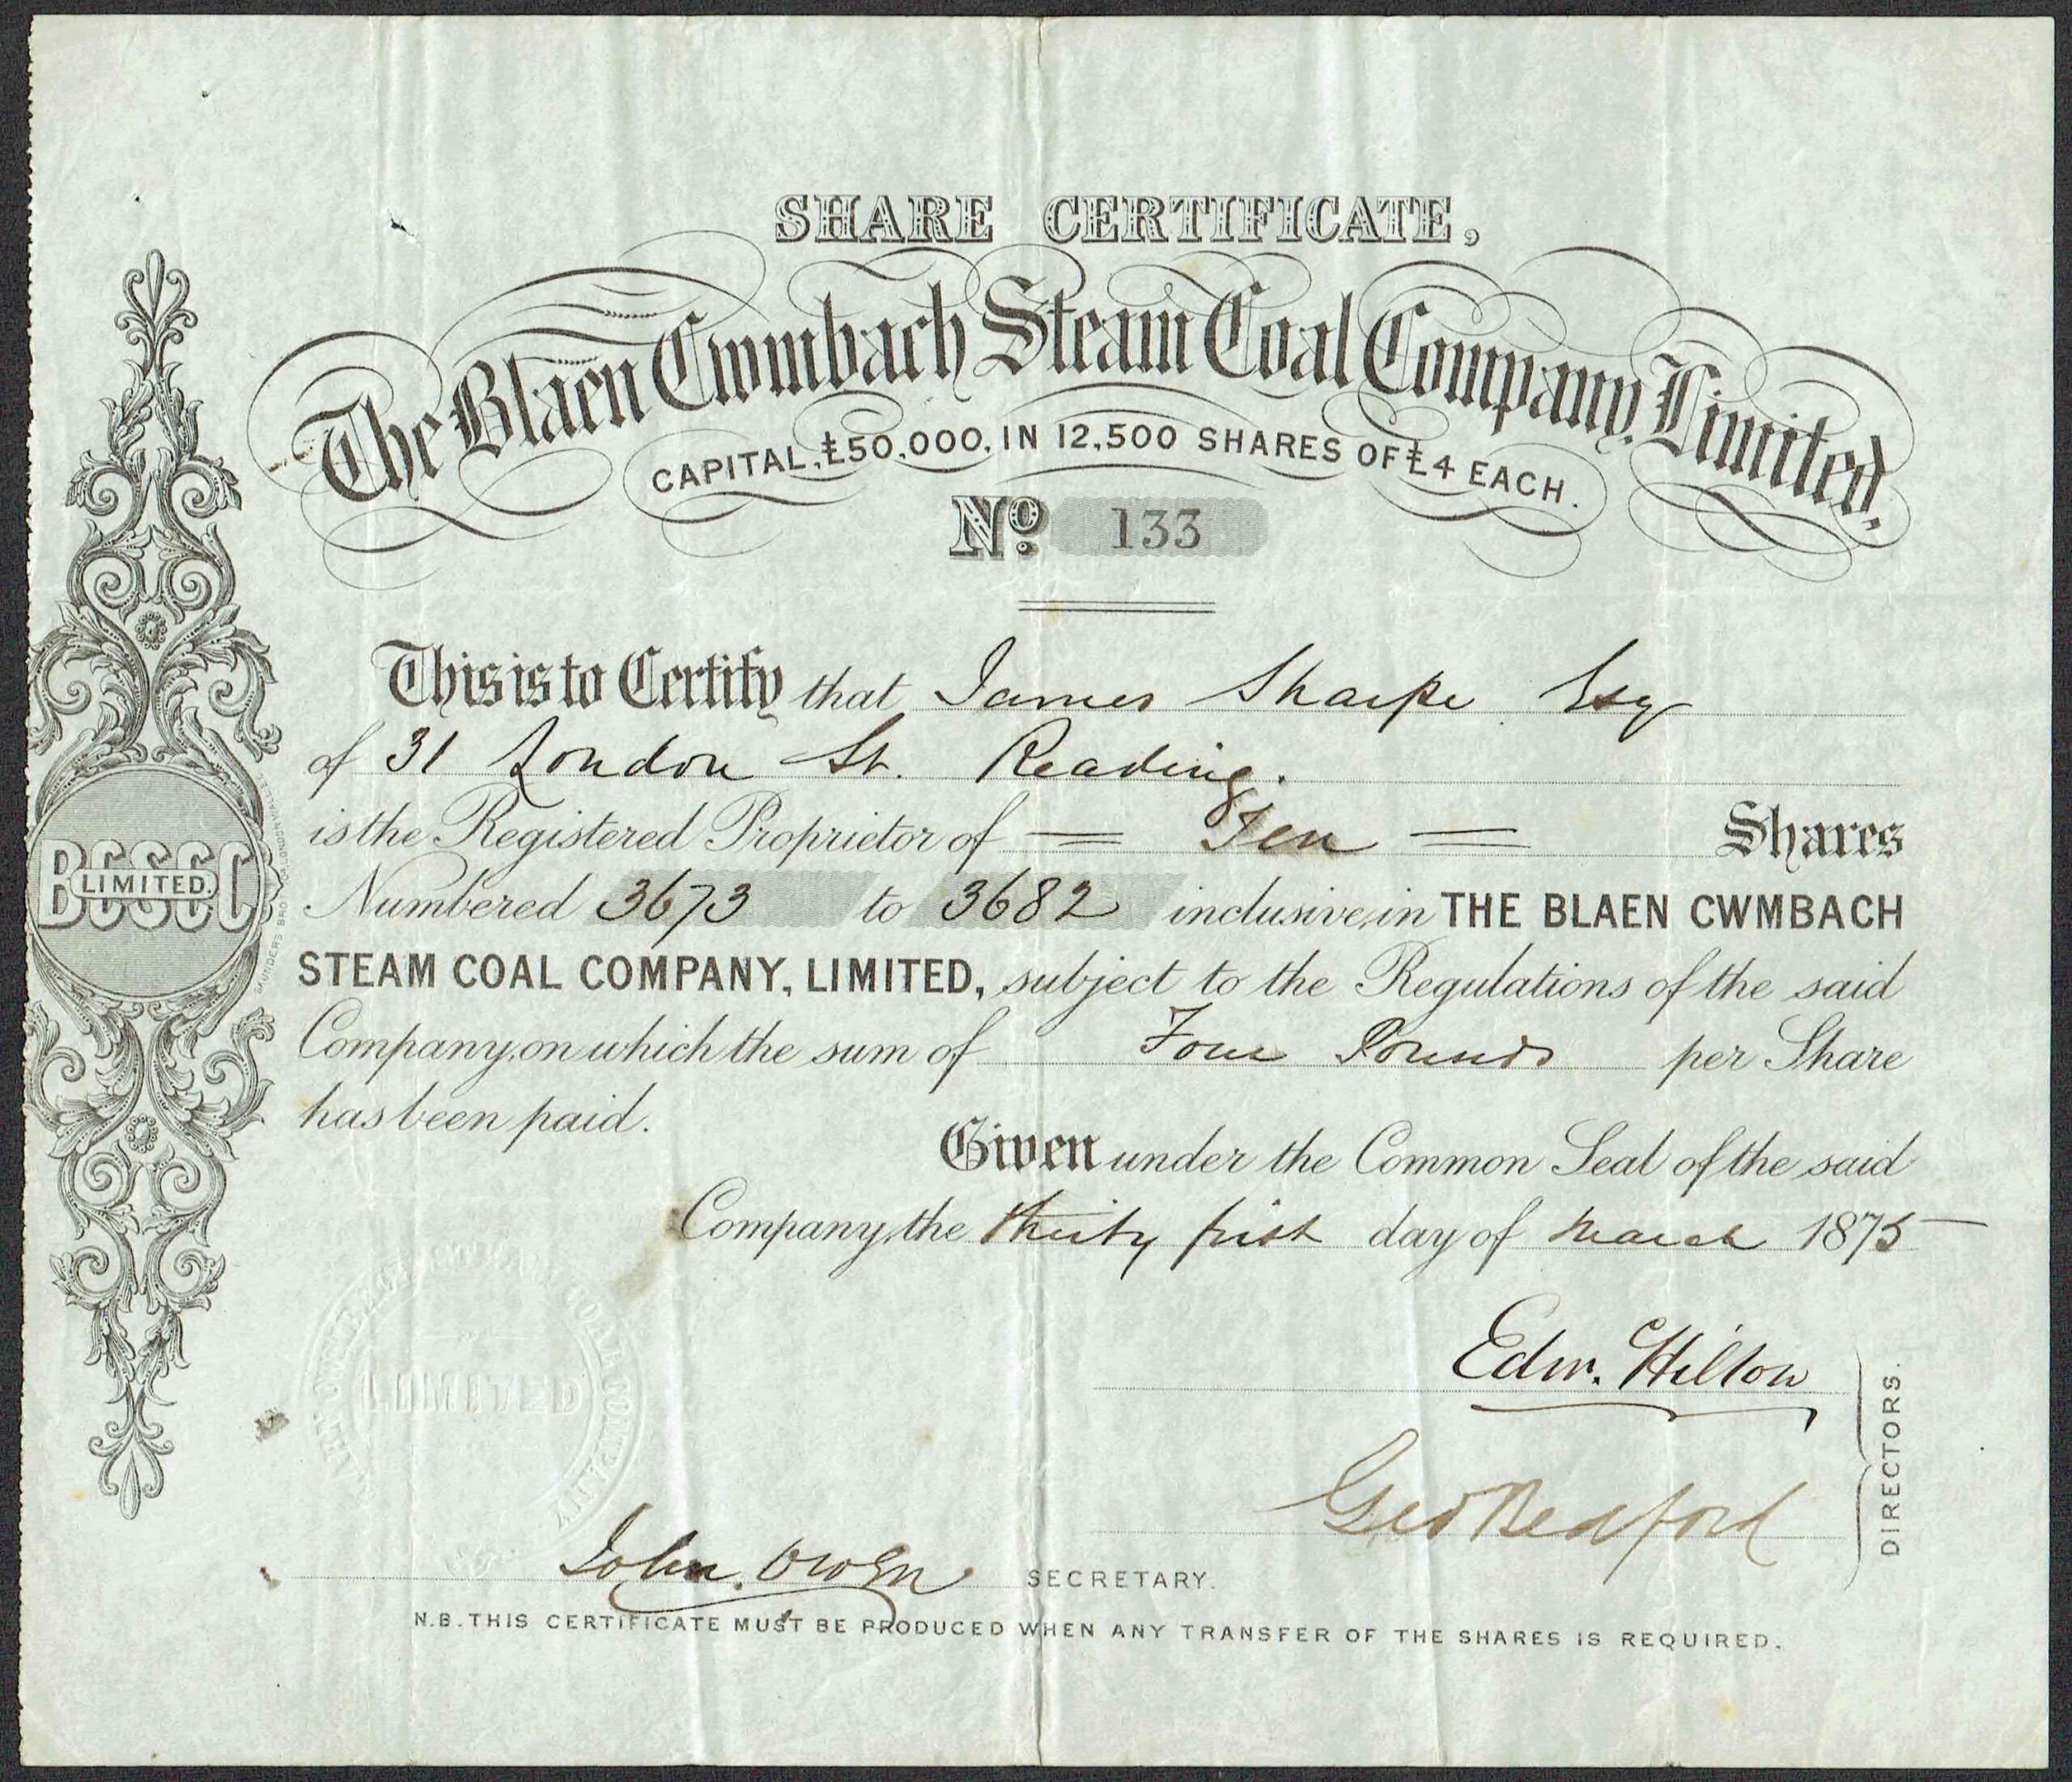 SHARE CERTIFICATE,
The Blaen Cwmbach Steam Coal Company, Limited,
CAPITAL, £50,000, IN 12,500 SHARES OF £4 EACH.
No. 133
This is to Certify that James Sharpe Esq
of 31 London St. Reading.
is the Registered Proprietor of = Ten = Shares
Numbered 3673 to 3682 inclusive, in THE BLAEN CWMBACH
STEAM COAL COMPANY, LIMITED, subject to the Regulations of the said
Company, on which the sum of Four Pounds per Share
has been paid.
Given under the Common Seal of the said
Company, the thirty first day of March 1875
BCSCC
LIMITED.
SAUNDERS BROS LONDON WALL E.C.
LIMITED
COAL COMPANY
Edw. Hilton
Geo Redford
DIRECTORS.
John Owen SECRETARY.
N.B. THIS CERTIFICATE MUST BE PRODUCED WHEN ANY TRANSFER OF THE SHARES IS REQUIRED.